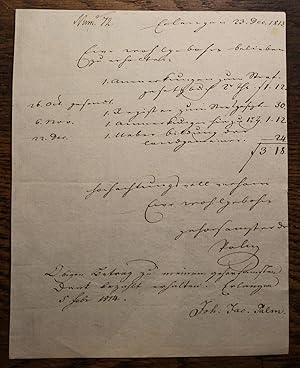 Num. 72
Erlangen 23. Dec. 1813
Euer Wohlgebohr belieben
zu erhalten:
1. Anmerkungen zum Straf
gesetzb 2r Th. f 1. 12
26 Oct.
1 Register zum Strafgesetzb 30
6 Nov. 1 Anmerkungen hiezu 1. 12
22 Dec. 1 Ueber bildung der
Landgemeinen. 24
f 3 18
Hochachtungsvoll
Euer Wohlgebohr
gehorsamster Dr
Palm
Obigen Betrag zu meinem gehorsamsten
Dank bezahlt erhalten. Erlangen
5 Febr 1814.
Joh. Jac. Palm.